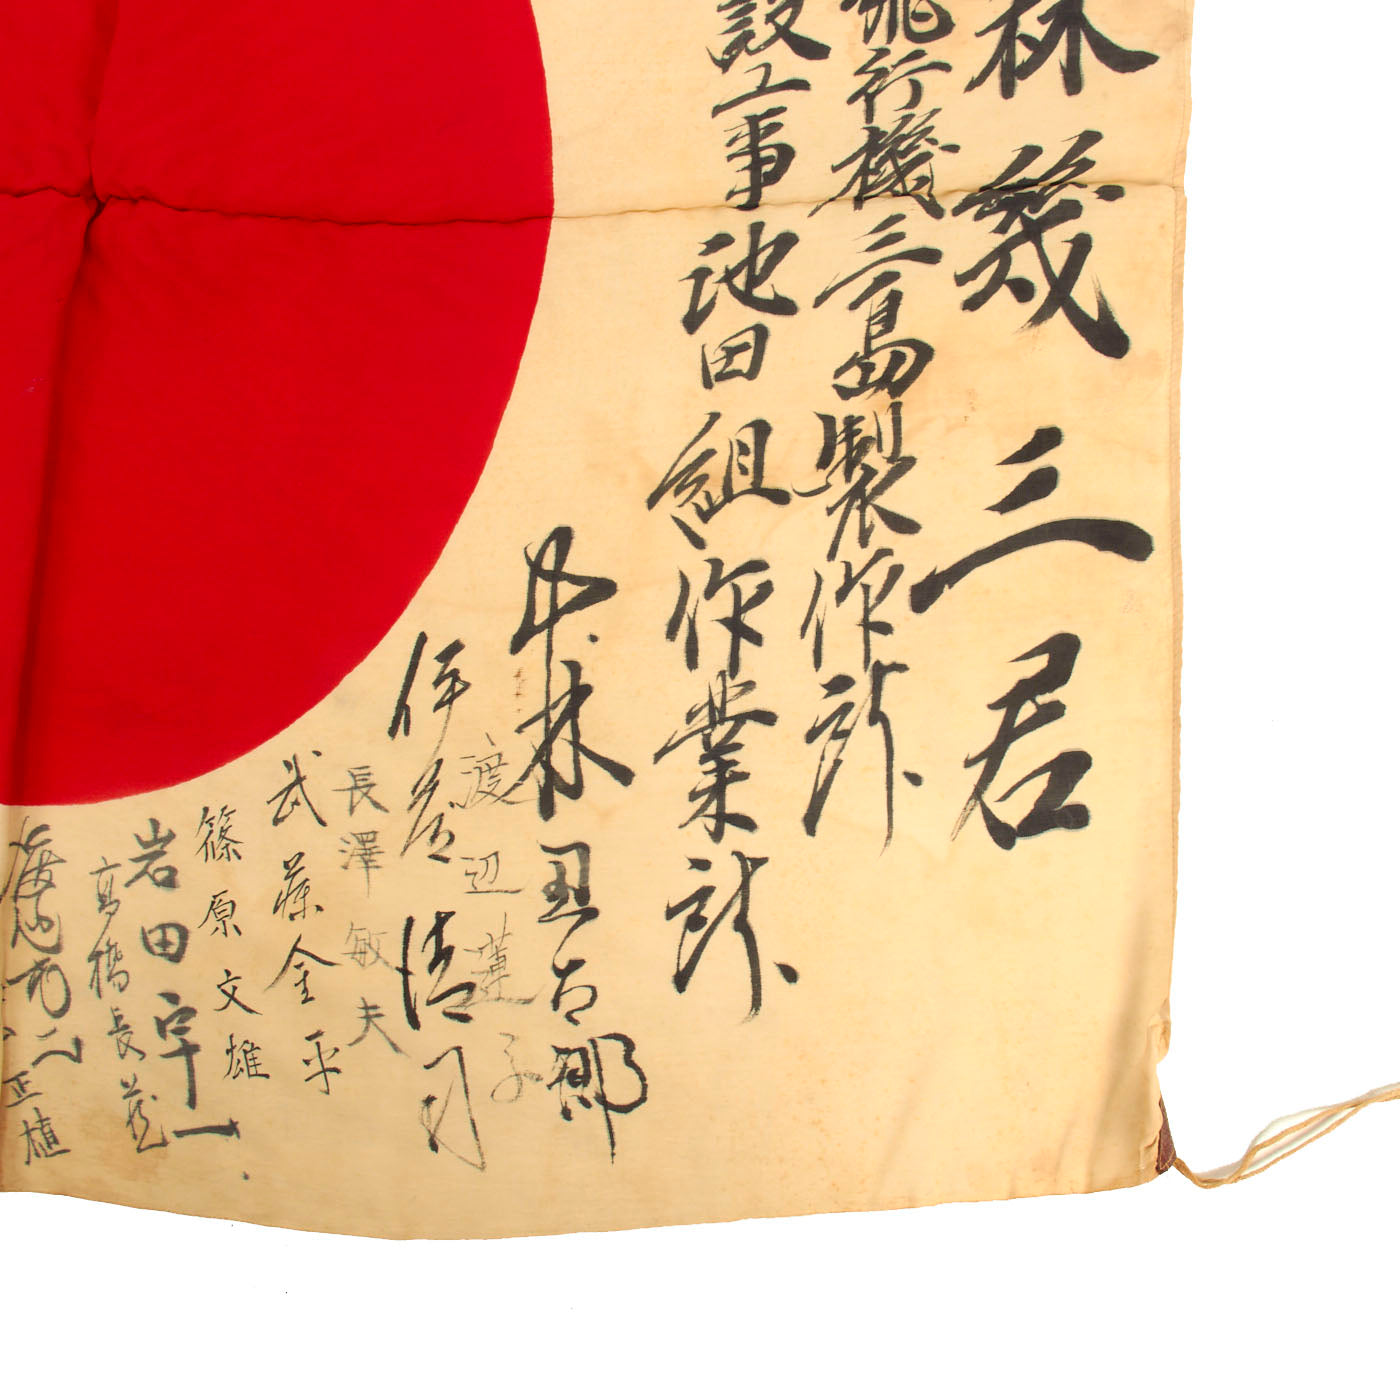 林幾三君
飛行機三島製作所
設工事池田組作業所
林丑太郎
渡辺蓮子
伊藤清司
長澤敏夫
武藤金平
篠原文雄
岩田宇一
高橋長蔵
正植